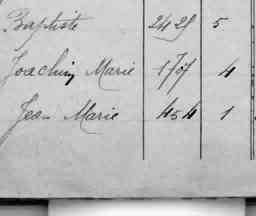 Baptiste 2429 5
Joachim Marie 1707 4
Jean Marie 454 1